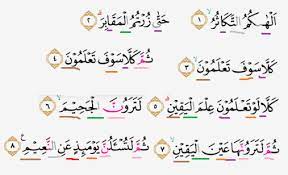 اَلْهٰىكُمُ التَّكَاثُرُۙ ١ حَتّٰى زُرْتُمُ الْمَقَابِرَۗ ٢
كَلَّا سَوْفَ تَعْلَمُوْنَۙ ٣ ثُمَّ كَلَّا سَوْفَ تَعْلَمُوْنَ ٤
كَلَّا لَوْ تَعْلَمُوْنَ عِلْمَ الْيَقِيْنِۗ ٥ لَتَرَوُنَّ الْجَحِيْمَۙ ٦
ثُمَّ لَتَرَوُنَّهَا عَيْنَ الْيَقِيْنِۙ ٧ ثُمَّ لَتُسْـَٔلُنَّ يَوْمَىِٕذٍ عَنِ النَّعِيْمِ ٨